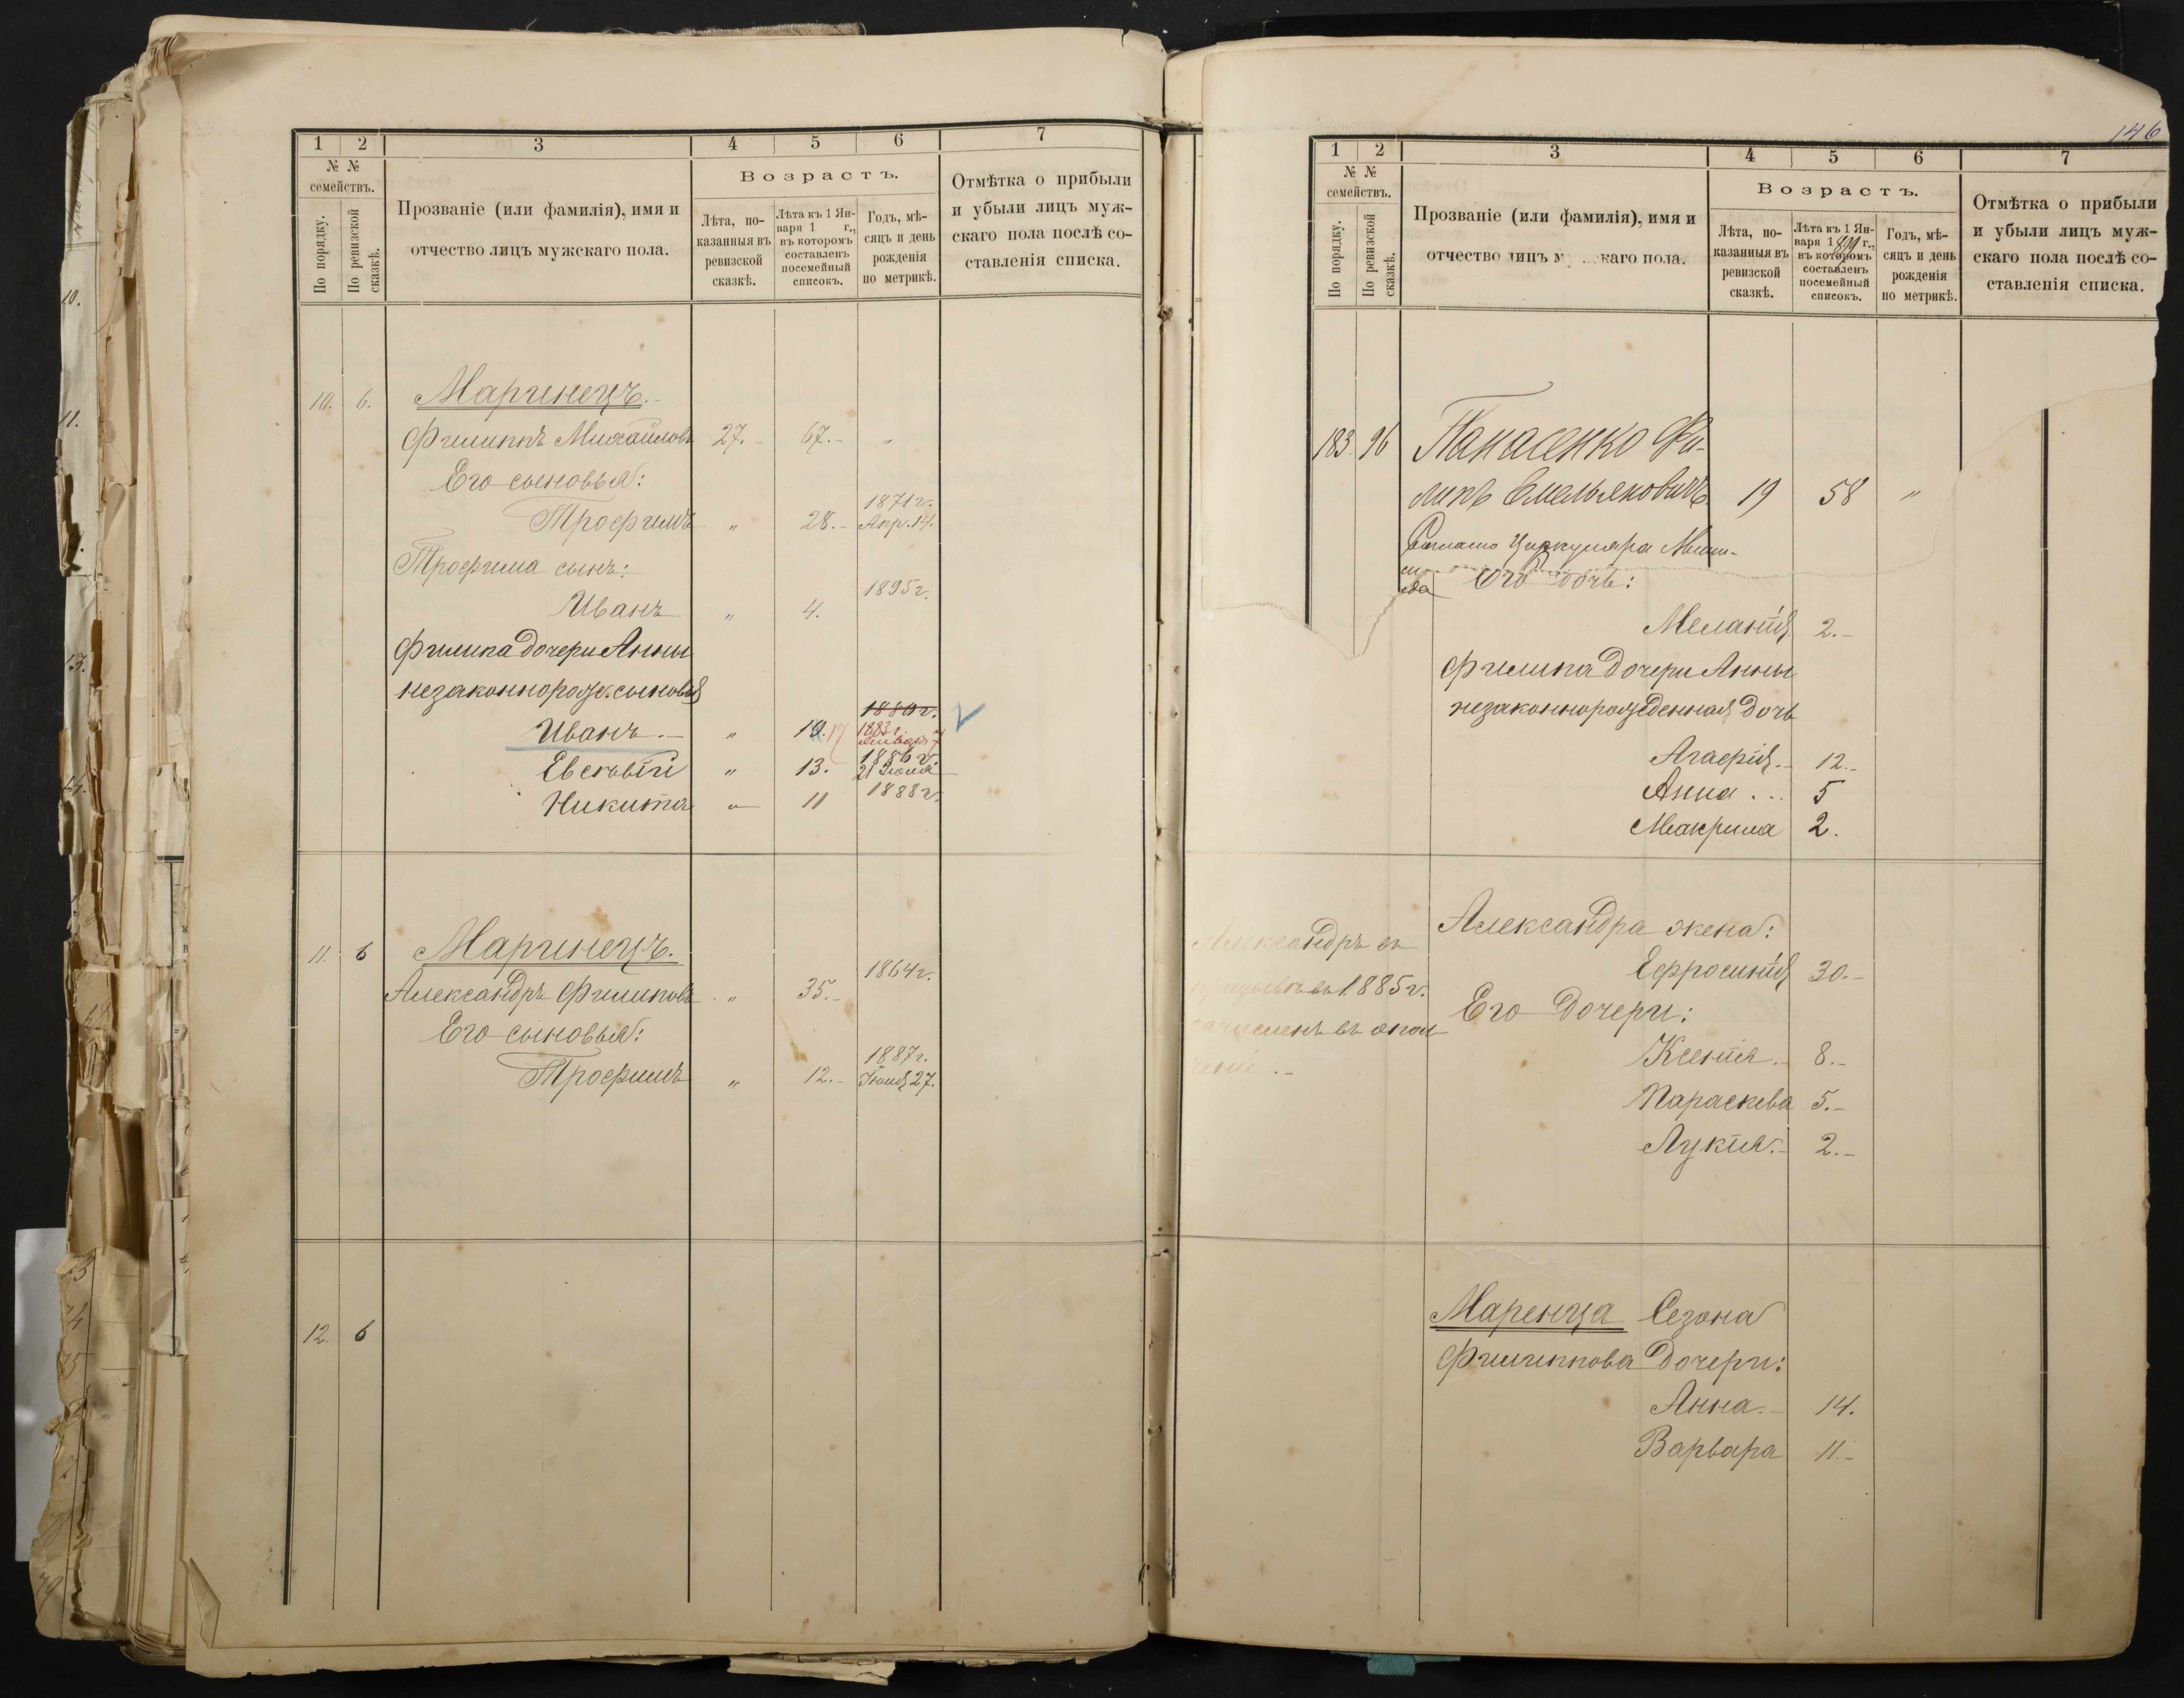 1 2 3 4 5 6 7
№ №
семействъ.
По порядку.
По ревизской
сказкѣ.
Прозваніе (или фамилія), имя и
отчество лицъ мужскаго пола.
Возрастъ.
Лѣта, по-
казанныя въ
ревизской
сказкѣ.
Лѣта къ 1 Ян-
варя 1 г.,
въ которомъ
составленъ
посемейный
списокъ.
Годъ, мѣ-
сяцъ и день
рожденія
по метрикѣ.
Отмѣтка о прибыли
и убыли лицъ муж-
скаго пола послѣ со-
ставленія списка.
10. 6. Маринецъ.
Филиппъ Михайловъ 27.- 67.- "
Его сыновья:
Трофимъ " 28.- 1871 г. Апр. 14.
Трофима сынъ:
Иванъ " 4. 1895 г.
Филипа дочери Анны
незаконнорожд. сыновья
1880 г.
Иванъ.- " 19. 17 1882 г. Января 7
Евсевій " 13. 1886 г. 21 Іюля
Никита " 11 1888 г.
11. 6 Маринецъ.
Александръ Филиповъ " 35.- 1864 г.
Его сыновья:
Трофимъ " 12.- 1887 г. Іюля 27.
12. 6
146
1 2 3 4 5 6 7
№ №
семействъ.
По порядку.
По ревизской
сказкѣ.
Прозваніе (или фамилія), имя и
отчество лицъ м каго пола.
Возрастъ.
Лѣта, по-
казанныя въ
ревизской
сказкѣ.
Лѣта къ 1 Ян-
варя 1899 г.,
въ которомъ
составленъ
посемейный
списокъ.
Годъ, мѣ-
сяцъ и день
рожденія
по метрикѣ.
Отмѣтка о прибыли
и убыли лицъ муж-
скаго пола послѣ со-
ставленія списка.
183. 96 Панасенко Фи-
липъ Емельяновичъ 19 58 "
Согласно Циркуляра Мини-
Его дочь:
Меланія 2.-
Филипа дочери Анны
незаконнорожденная дочь
Агафія.- 12.-
Анна... 5
Макрина 2.
Александръ въ
призывъ въ 1885 г.
зачисленъ въ опол
ченіе.-
Александра жена:
Ефросинія 30.-
Его дочери:
Ксенія.- 8.-
Параскева 5.-
Лукія.- 2.-
Маренца Созона
Филиппова дочери:
Анна.- 14.
Варвара 11.-